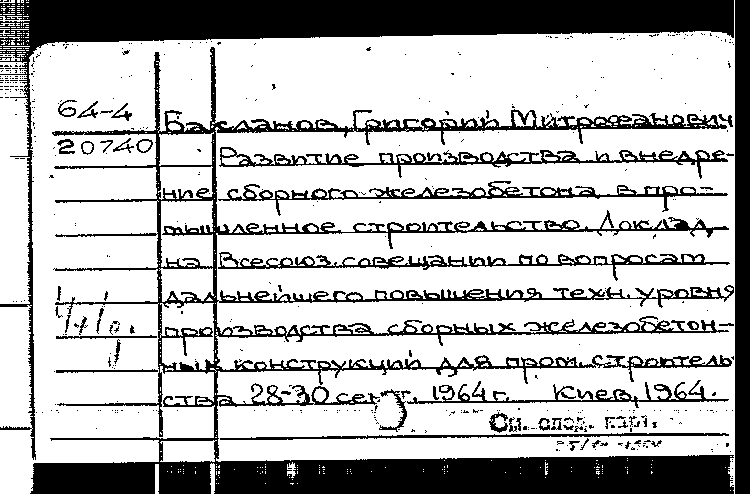 64-4
20740
Бакланов, Григорий Митрофанович
Развитие производства и внедре-
ние сборного железобетона в про-
мышленное строительство. Доклад
на Всесоюз. совещании по вопросам
дальнейшего повышения техн. уровня
производства сборных железобетон-
ных конструкций для пром. строитель
ства 28-30 сент. 1964 г. Киев, 1964.
См. след. карт.